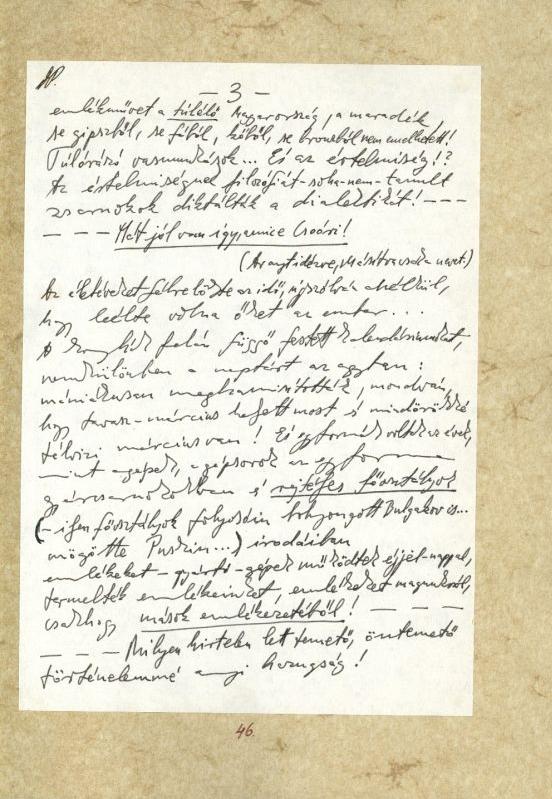 — 3 —
emlékművet a túlélő Magyarország, a maradék,
se gipszből, se fából, kőből, se bronzból nem emelhetett!
Túlórázó vasmunkások... És az értelmiség!?
Az értelmiségnek filozófiát-soha-nem-tanult
zsarnokok diktálták a dialektikát! – – –
– – – Hát jól van így, amice Csoóri!
(Aranyt idézve, másítva csak a nevet.)
Az életéveket félrelökte az idő, úgyszólván anélkül,
hogy leélte volna őket az ember...
A konyhák falán függő festett kalendáriumokat,
rendkülönben a naptárt az agyban:
mániákusan meghamisították, mondván,
hogy tavasz-március helyett most s mindörökké
télvízi március van! És egyformák voltak az évek,
mint a gépek, a gépsorok az egyforma
gyárcsarnokokban s rejtélyes főosztályok
(– ilyen főosztályok folyosóin bolyongott Bulgakov is...
mögötte Puskin...) irodáiban
emlékeket-gyártó-gépek működtek éjjel-nappal,
termelték emlékeinket, emlékeket magunkról,
csakhogy mások emlékezetéből! – – – –
– – – Milyen hirtelen lett temető, öntemető
történelemmé annyi hazugság!
46.